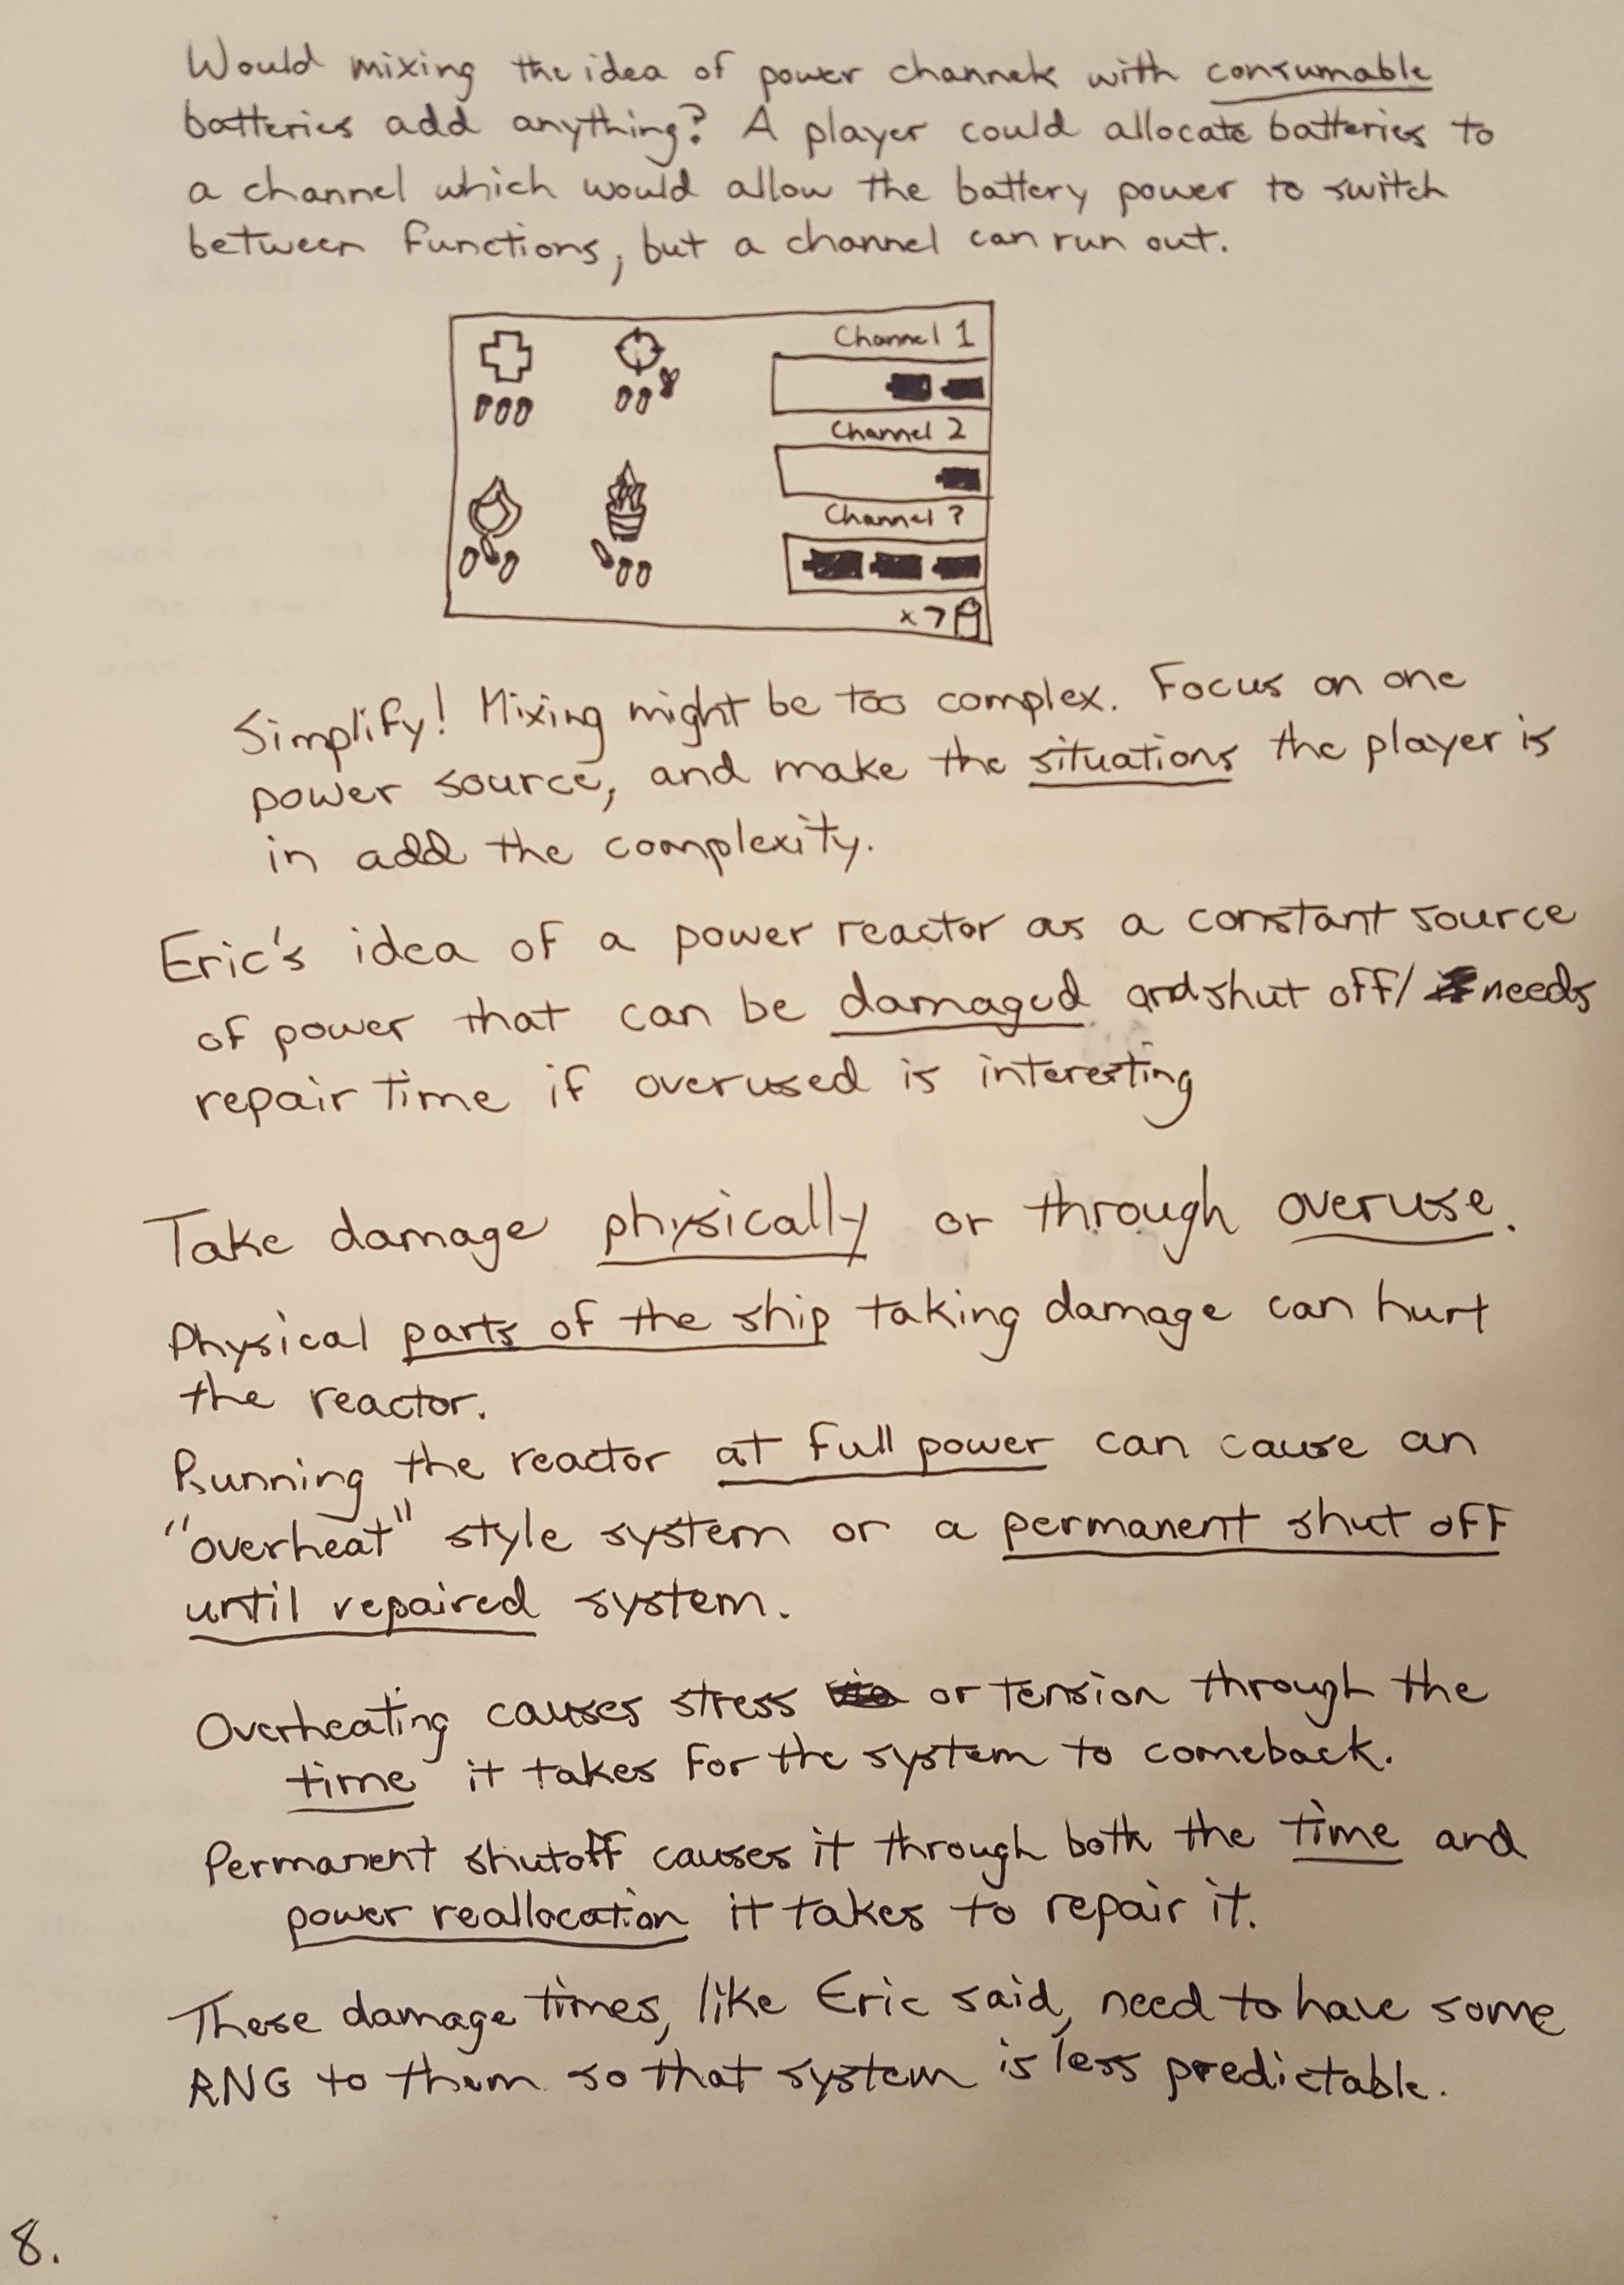 Would mixing the idea of power channels with consumable
batteries add anything? A player could allocate batteries to
a channel which would allow the battery power to switch
between functions, but a channel can run out.
Channel 1
Channel 2
Channel ?
x7
Simplify! Mixing might be too complex. Focus on one
power source, and make the situations the player is
in add the complexity.
Eric's idea of a power reactor as a constant source
of power that can be damaged and shut off/ needs
repair time if overused is interesting
Take damage physically or through overuse.
Physical parts of the ship taking damage can hurt
the reactor.
Running the reactor at full power can cause an
"overheat" style system or a permanent shut off
until repaired system.
Overheating causes stress or tension through the
time it takes for the system to comeback.
Permanent shutoff causes it through both the time and
power reallocation it takes to repair it.
These damage times, like Eric said, need to have some
RNG to them so that system is less predictable.
8.